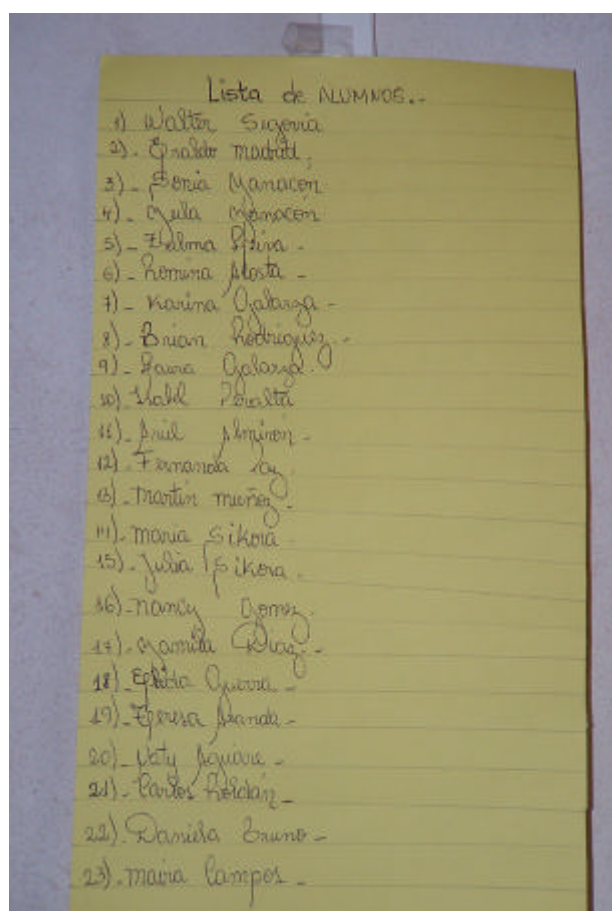 Lista de ALUMNOS..-
1) Walter Segovia
2).- Eraldo Madrid,
3)_ Sonia Manacén
4)_ Manacén
5)_ Thelma -
6)_ Romina Acosta -
7)_ Karina Galarza -
8)_ Brian Rodriguez -
9)_ Laura Galarza.
10) Isabel Peralta
11)_ Ariel Almiron -
12)_ Fernanda
13)_ Martin muñoz -
14)_ maria Sikora
15)_ Julia Sikora .
16)_ nancy Gomez.
17)_ Yamila Diaz. -
18)_ Guerra -
19)_ Teresa Aranda -
20)_ Naty Aguirre -
21)_ Carlos Roldán -
22)_ Daniela Bruno -
23)_ Maira Campos -